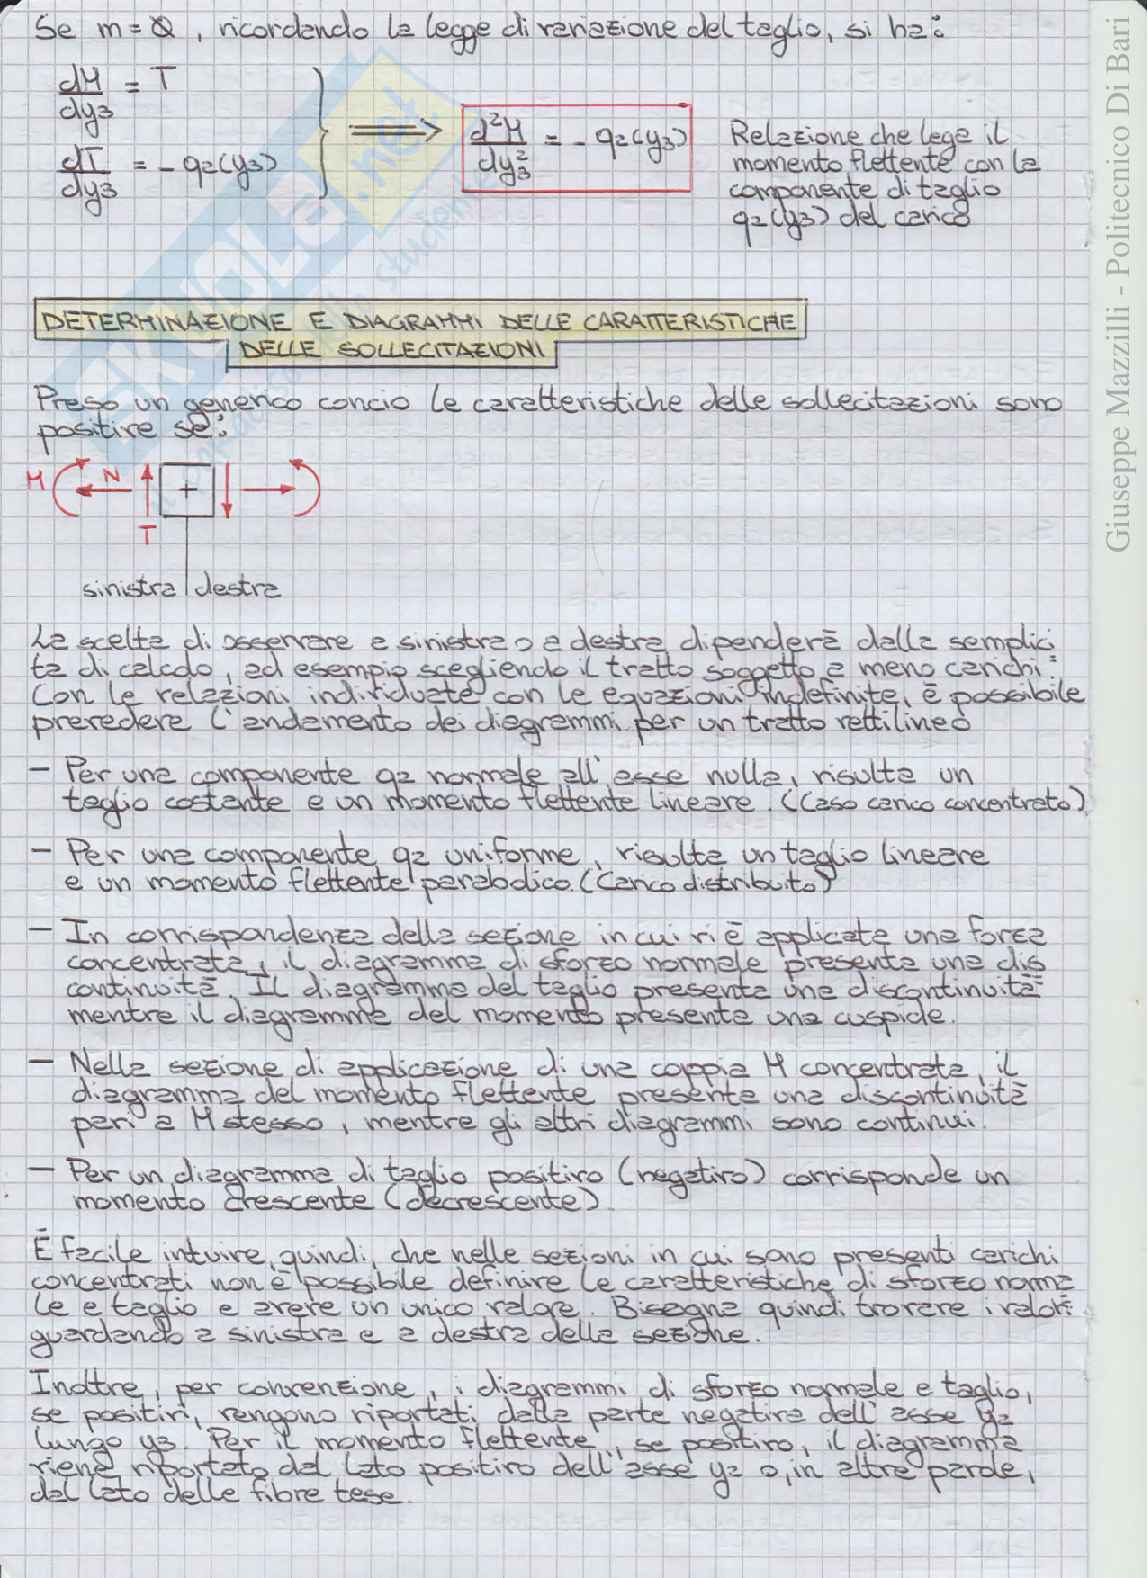 Se m = 0, ricordando la legge di variazione del taglio, si ha:
dM/dy3 = T
dT/dy3 = - q2(y3)
⟹ d²M/dy3² = - q2(y3)
Relazione che lega il
momento flettente con la
componente di taglio
q2(y3) del carico
DETERMINAZIONE E DIAGRAMMI DELLE CARATTERISTICHE
DELLE SOLLECITAZIONI
Preso un generico concio le caratteristiche delle sollecitazioni sono
positive se:
M N T +
sinistra destra
La scelta di osservare a sinistra o a destra dipenderà dalla semplici
tà di calcolo, ad esempio scegliendo il tratto soggetto a meno carichi.
Con le relazioni individuate con le equazioni indefinite, è possibile
prevedere l'andamento dei diagrammi per un tratto rettilineo
- Per una componente q2 normale all'asse nulla, risulta un
taglio costante e un momento flettente lineare. (Caso carico concentrato)
- Per una componente q2 uniforme, risulta un taglio lineare
e un momento flettente parabolico. (Carico distribuito)
- In corrispondenza della sezione in cui vi è applicata una forza
concentrata, il diagramma di sforzo normale presenta una dis
continuità. Il diagramma del taglio presenta una discontinuità
mentre il diagramma del momento presenta una cuspide.
- Nella sezione di applicazione di una coppia M concentrata, il
diagramma del momento flettente presenta una discontinuità
pari a M stesso, mentre gli altri diagrammi sono continui.
- Per un diagramma di taglio positivo (negativo) corrisponde un
momento crescente (decrescente).
È facile intuire, quindi, che nelle sezioni in cui sono presenti carichi
concentrati non è possibile definire le caratteristiche di sforzo norma
le e taglio e avere un unico valore. Bisogna quindi trovare i valori
guardando a sinistra e a destra della sezione.
Inoltre, per convenzione, i diagrammi di sforzo normale e taglio,
se positivi, vengono riportati dalla parte negativa dell'asse y2
lungo y3. Per il momento flettente, se positivo, il diagramma
viene riportato dal lato positivo dell'asse y2 o, in altre parole,
dal lato delle fibre tese.
Giuseppe Mazzilli - Politecnico Di Bari
SKUOLA.net